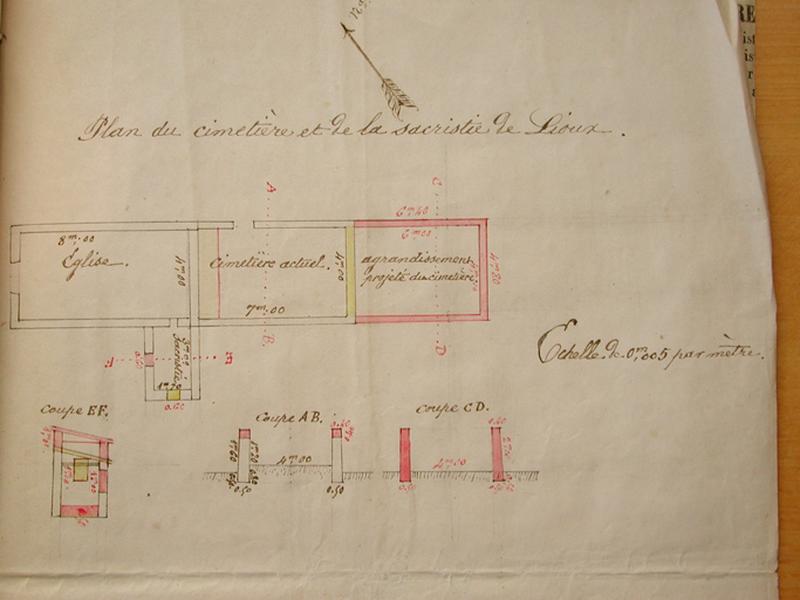 Plan du cimetière et de la sacristie de Lioux.
A
C
6m,40
8m,00
Église.
4m,00
Cimetière actuel.
4m,00
6m,00
agrandissement
projeté du cimetière
4m,80
7m,00
B
D
3m,00
Sacristie
F
E
1m,70
0,60
Echelle de 0m,005 par mètre.
Coupe EF.
Coupe AB.
Coupe CD.
4m,00
0.50
0.50
4m,00